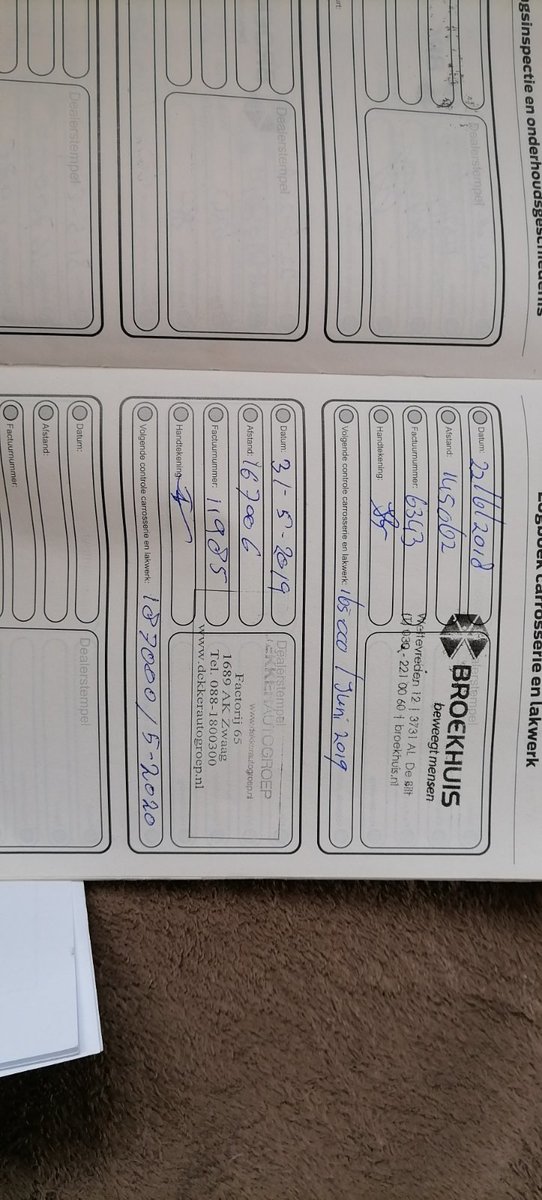 ngsinspectie en onderhoudsgeschiedenis
Dealerstempel
Dealerstempel
Dealerstempel
Logboek carrosserie en lakwerk
Datum: 22/6/2018
Afstand: 145062
Factuurnummer: 6343
Handtekening:
Volgende controle carrosserie en lakwerk: 165 000 / Juni 2019
BROEKHUIS
beweegt mensen
Weltevreden 12 | 3731 AL De Bilt
(T) 030 - 221 00 60 | broekhuis.nl
Datum: 31-5-2019
Afstand: 167006
Factuurnummer: 11985
Handtekening:
Volgende controle carrosserie en lakwerk: 187000/5-2020
Dealerstempel
DEKKERAUTOGROEP
www.dekkerautogroep.nl
Factorij 65
1689 AK Zwaag
Tel. 088-1800300
www.dekkerautogroep.nl
Datum:
Afstand:
Factuurnummer:
Dealerstempel